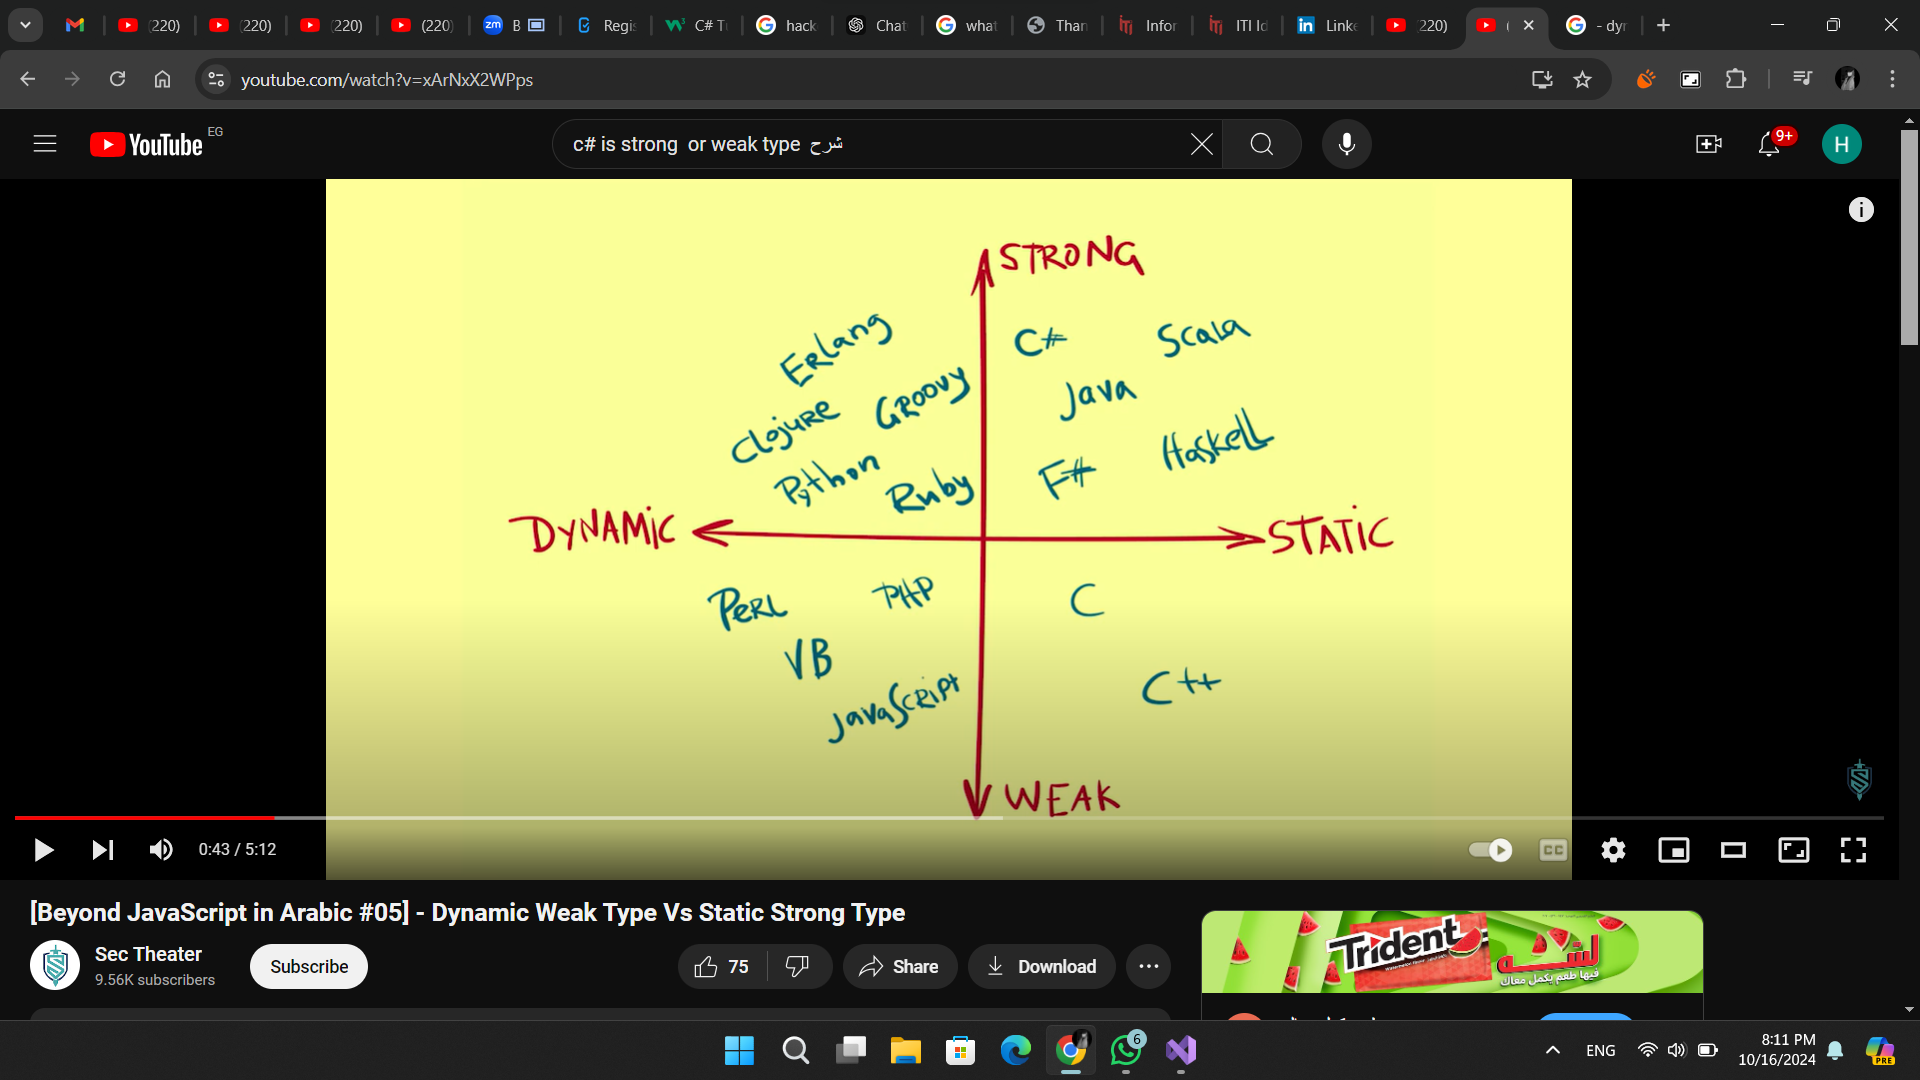 (220)
(220)
(220)
(220)
zm
B
Regis
C# Tu
hack
Chat
what
Than
Infor
ITI Id
Linke
(220)
(
- dyr
youtube.com/watch?v=xArNxX2WPps
YouTube EG
c# is strong or weak type شرح
9+
H
STRONG
Erlang
C#
Scala
Groovy
Java
Clojure
Haskell
Python
Ruby
F#
DYNAMIC
STATIC
PERL
PHP
C
VB
JavaScript
C++
WEAK
0:43 / 5:12
CC
[Beyond JavaScript in Arabic #05] - Dynamic Weak Type Vs Static Strong Type
Sec Theater
9.56K subscribers
Subscribe
75
Share
Download
Trident
لشه
فيها طعم يكمل معاك
6
ENG
8:11 PM
10/16/2024
PRE